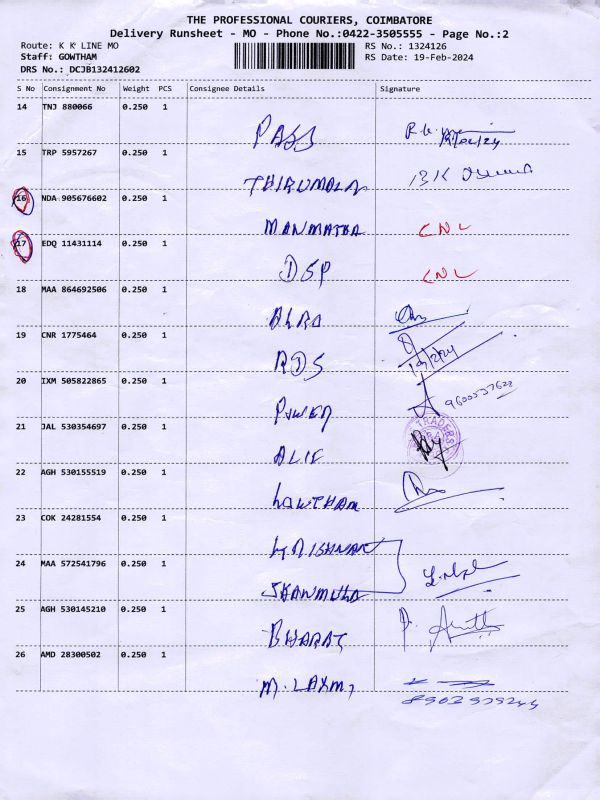 THE PROFESSIONAL COURIERS, COIMBATORE
Delivery Runsheet - MO - Phone No.:0422-3505555 - Page No.:2
Route: K K LINE MO
RS No.: 1324126
Staff: GOWTHAM
RS Date: 19-Feb-2024
DRS No.: DCJB132412602
S No Consignment No Weight PCS Consignee Details Signature
14 TNJ 880066 0.250 1
PASS
15 TRP 5957267 0.250 1
THIRUMALA
16 NDA 905676602 0.250 1
MANMATHA CNL
17 EDQ 11431114 0.250 1
DSP CNL
18 MAA 864692506 0.250 1
19 CNR 1775464 0.250 1
RDS 19/2/24
20 IXM 505822865 0.250 1
21 JAL 530354697 0.250 1
TRADERS
22 AGH 530155519 0.250 1
23 COK 24281554 0.250 1
24 MAA 572541796 0.250 1
25 AGH 530145210 0.250 1
BHARAT
26 AMD 28300502 0.250 1
M. LAXMI